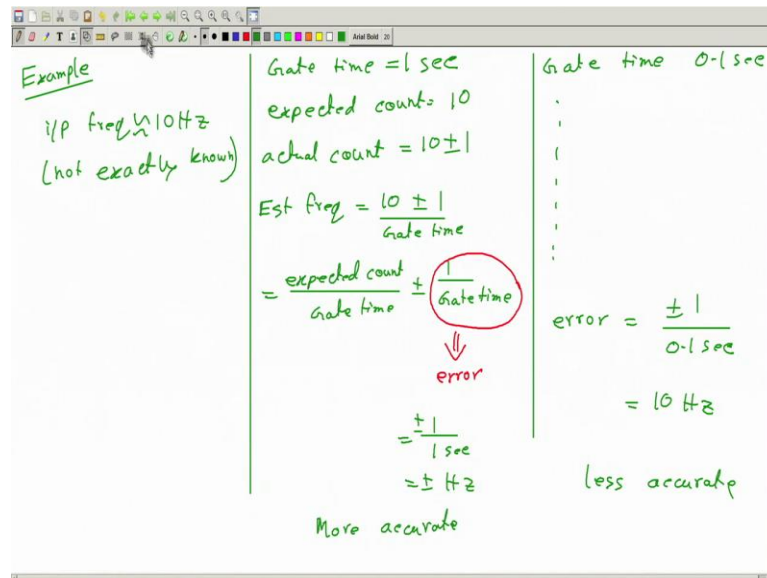 Arial Bold 20
Example
i/p freq ≈ 10 Hz
(not exactly known)
Gate time = 1 sec
expected count = 10
actual count = 10 ± 1
Est freq = 10 ± 1
Gate time
= expected count ± 1
Gate time Gate time
error
= ± 1
1 sec
= ± Hz
More accurate
Gate time 0.1 sec
error = ± 1
0.1 sec
= 10 Hz
less accurate